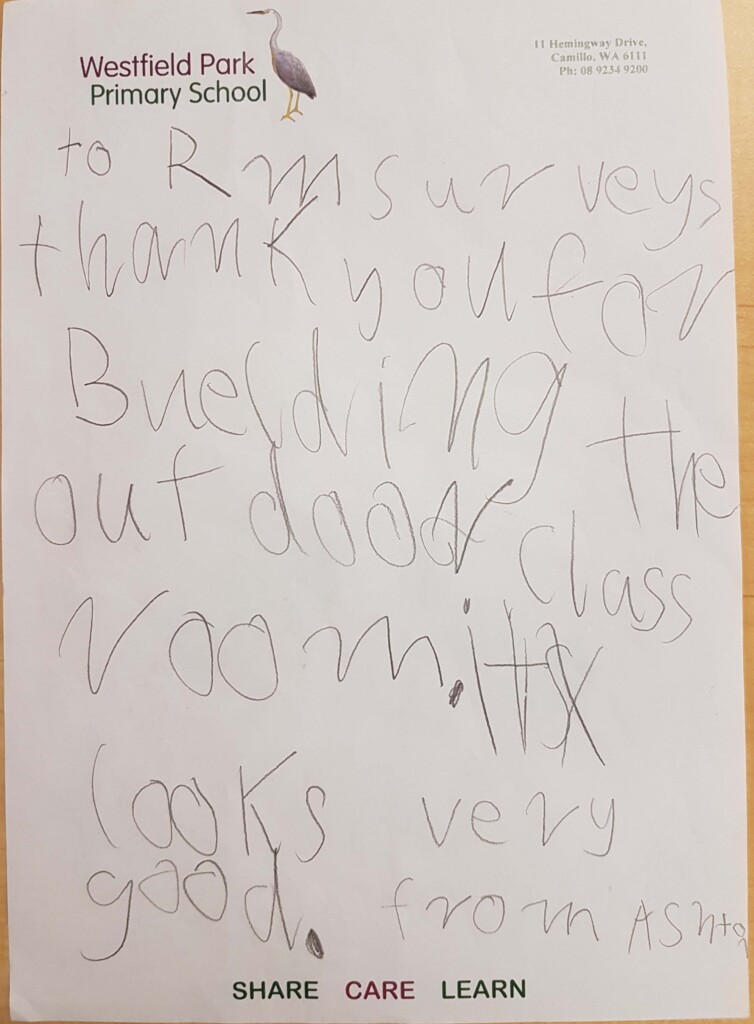 Westfield Park
Primary School
11 Hemingway Drive,
Camillo, WA 6111
Ph: 08 9234 9200
to Rm surveys
thank you for
Buelding the
out door class
room. it
looks very
good. from
SHARE CARE LEARN